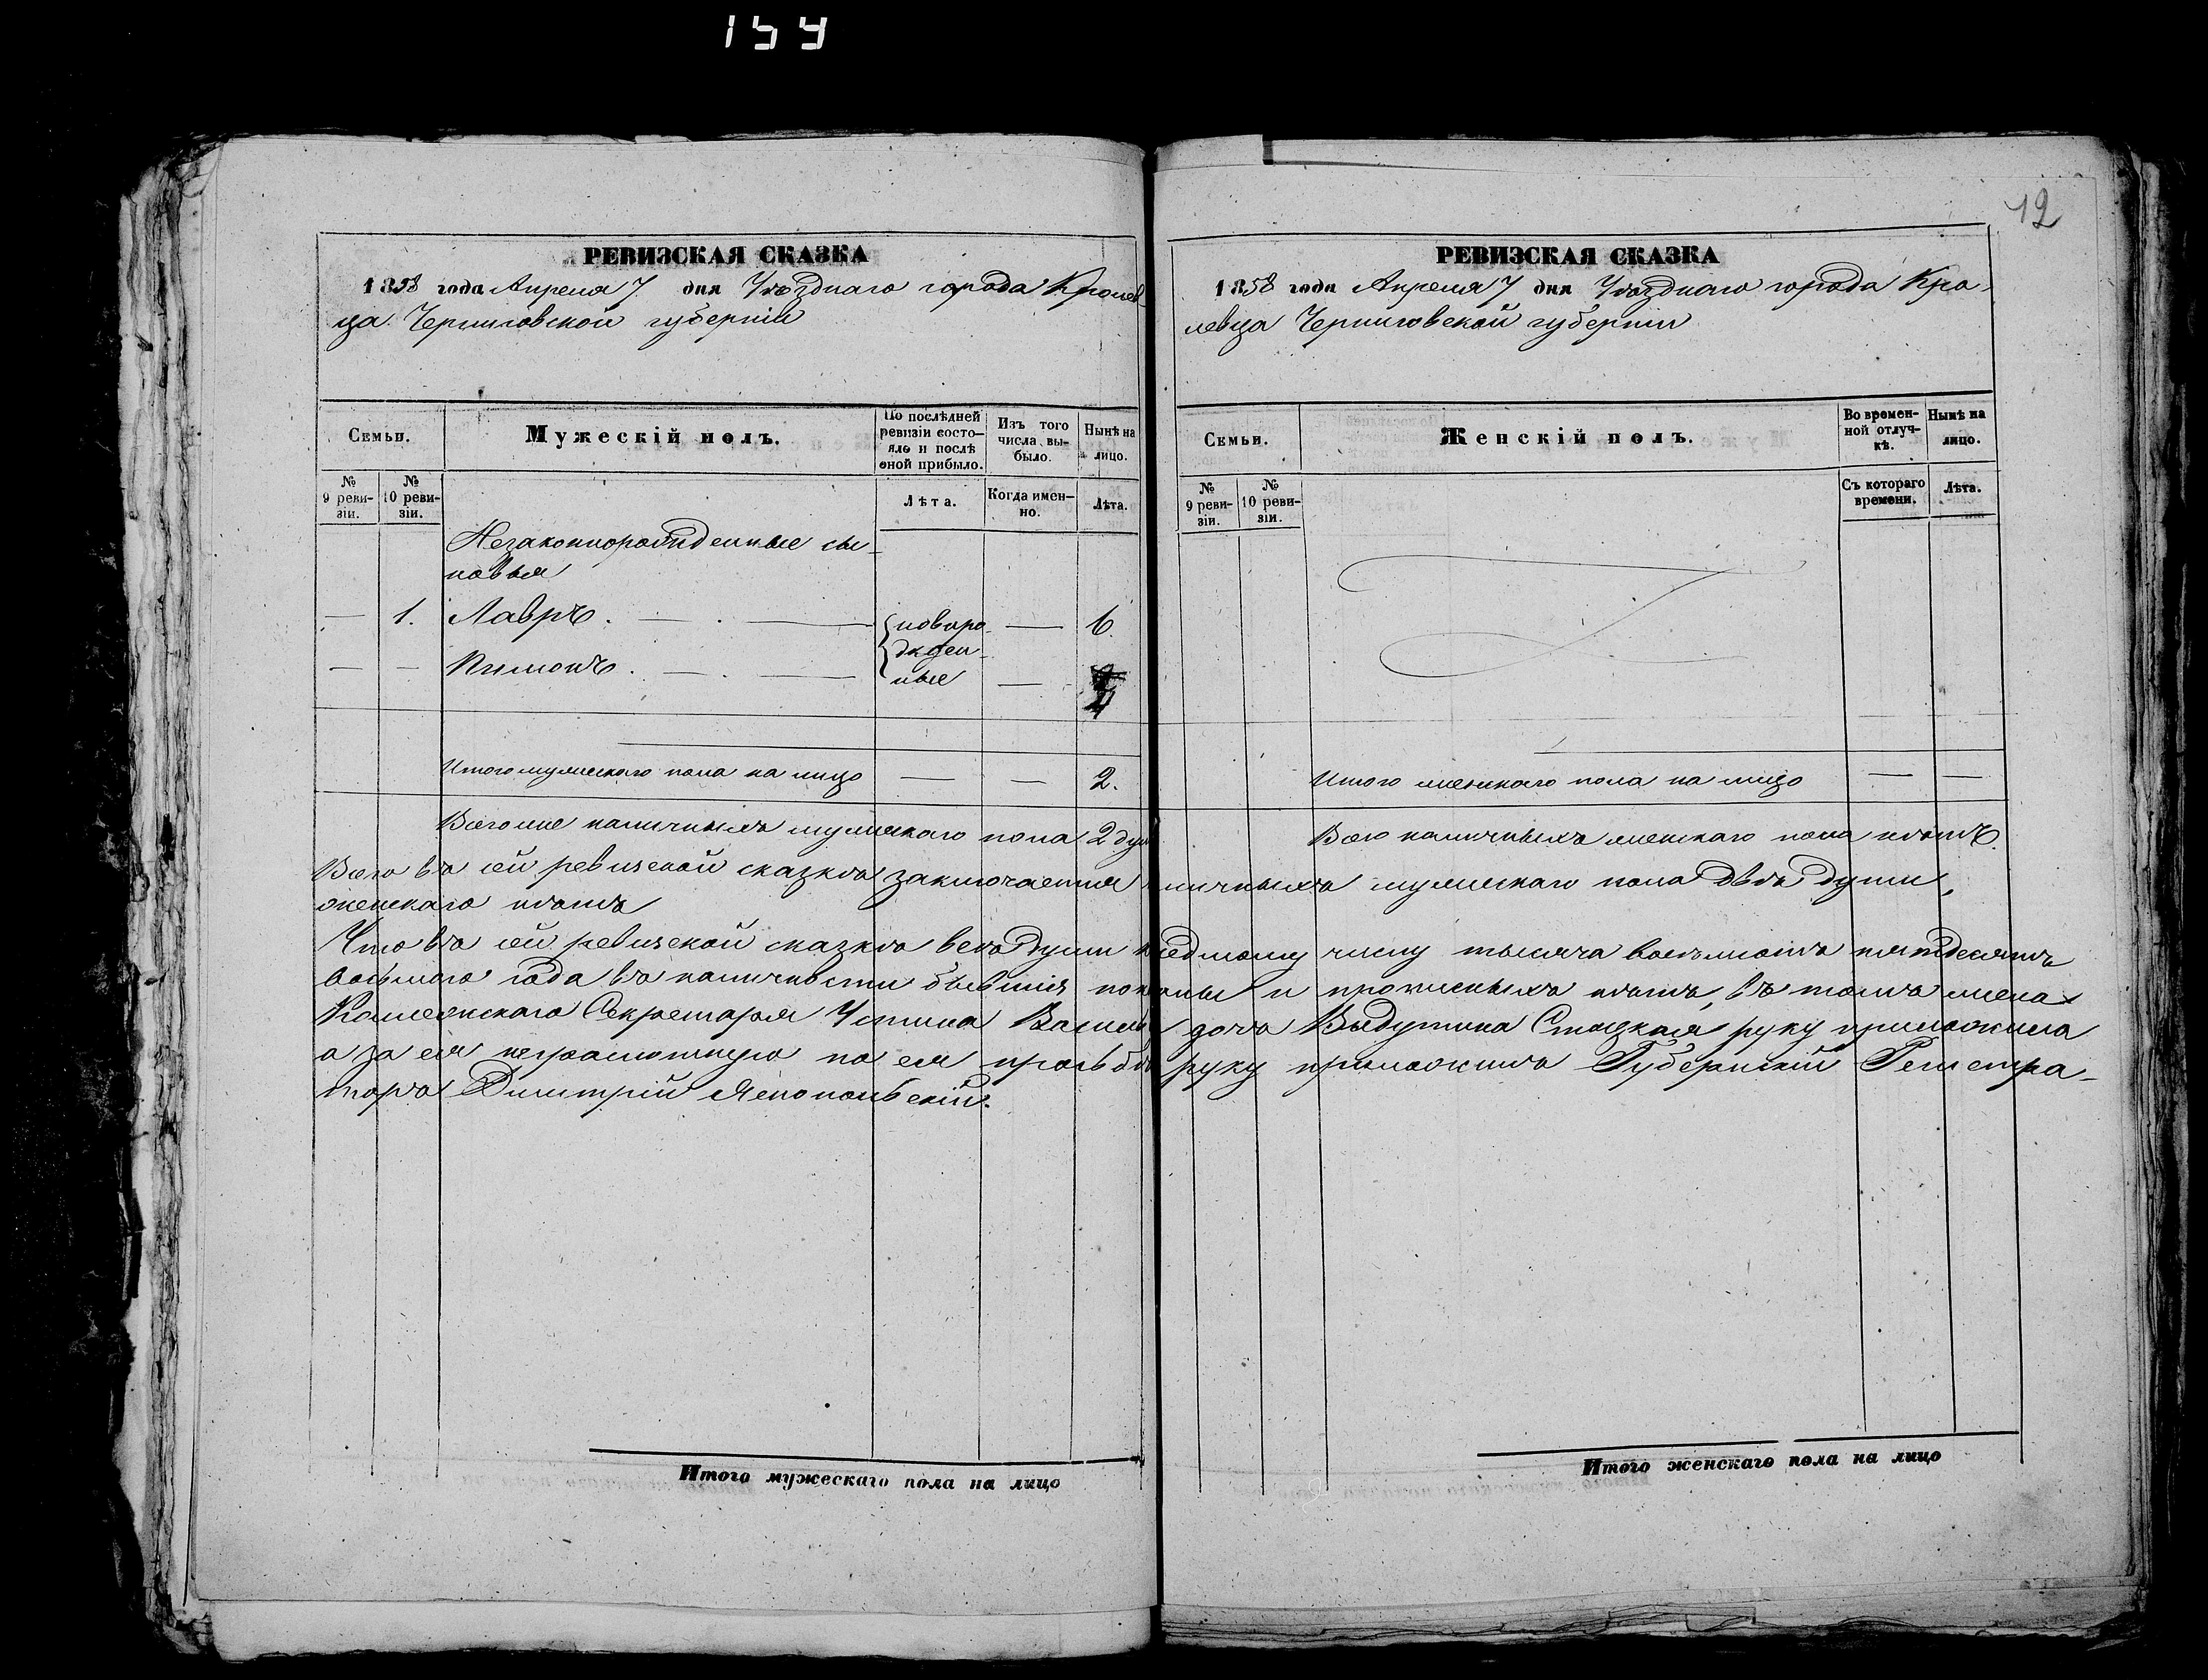 159
12
РЕВИЗСКАЯ СКАЗКА
1858 года Апреля 7 дня Уѣзднаго города Кролев
ца Черниговской губерніи
Семьи.
Мужескій полъ.
По послѣдней ревизіи состояло и послѣ оной прибыло.
Изъ того числа выбыло.
Нынѣ на лицо.
№ 9 ревизіи.
№ 10 ревизіи.
Лѣта.
Когда именно.
Лѣта.
Незаконнорожденные сы-
новья
— 1. Лавръ. — новоро — 6.
— — Пимонъ. — жден-
ные —
Итого мужескаго пола на лицо — — 2.
Всего же наличныхъ мужескаго пола 2 душ
РЕВИЗСКАЯ СКАЗКА
1858 года Апреля 7 дня Уѣзднаго города Кро-
левца Черниговской губерніи
Семьи.
Женскій полъ.
Во временной отлучкѣ.
Нынѣ на лицо.
№ 9 ревизіи.
№ 10 ревизіи.
Съ котораго времени.
Лѣта.
Итого женскаго пола на лицо — —
Всего наличныхъ женскаго пола нѣтъ.
Всего въ сей ревизской сказкѣ заключается наличныхъ мужескаго пола двѣ души,
женскаго нѣтъ
Что въ сей ревизской сказкѣ всѣ души къ седмому числу тысяча восемьсотъ пятдесятъ
восьмого года въ наличности бывшія показаны и прописныхъ нѣтъ, въ томъ жена
Коллежскаго Секретаря Устина Васильева дочь Стацкая руку приложила
а за ея неграмотную по ея прозьбѣ руку приложилъ Губернскій Регистра-
торъ Димитрій Яснопольскій.
Итого мужескаго пола на лицо
Итого женскаго пола на лицо